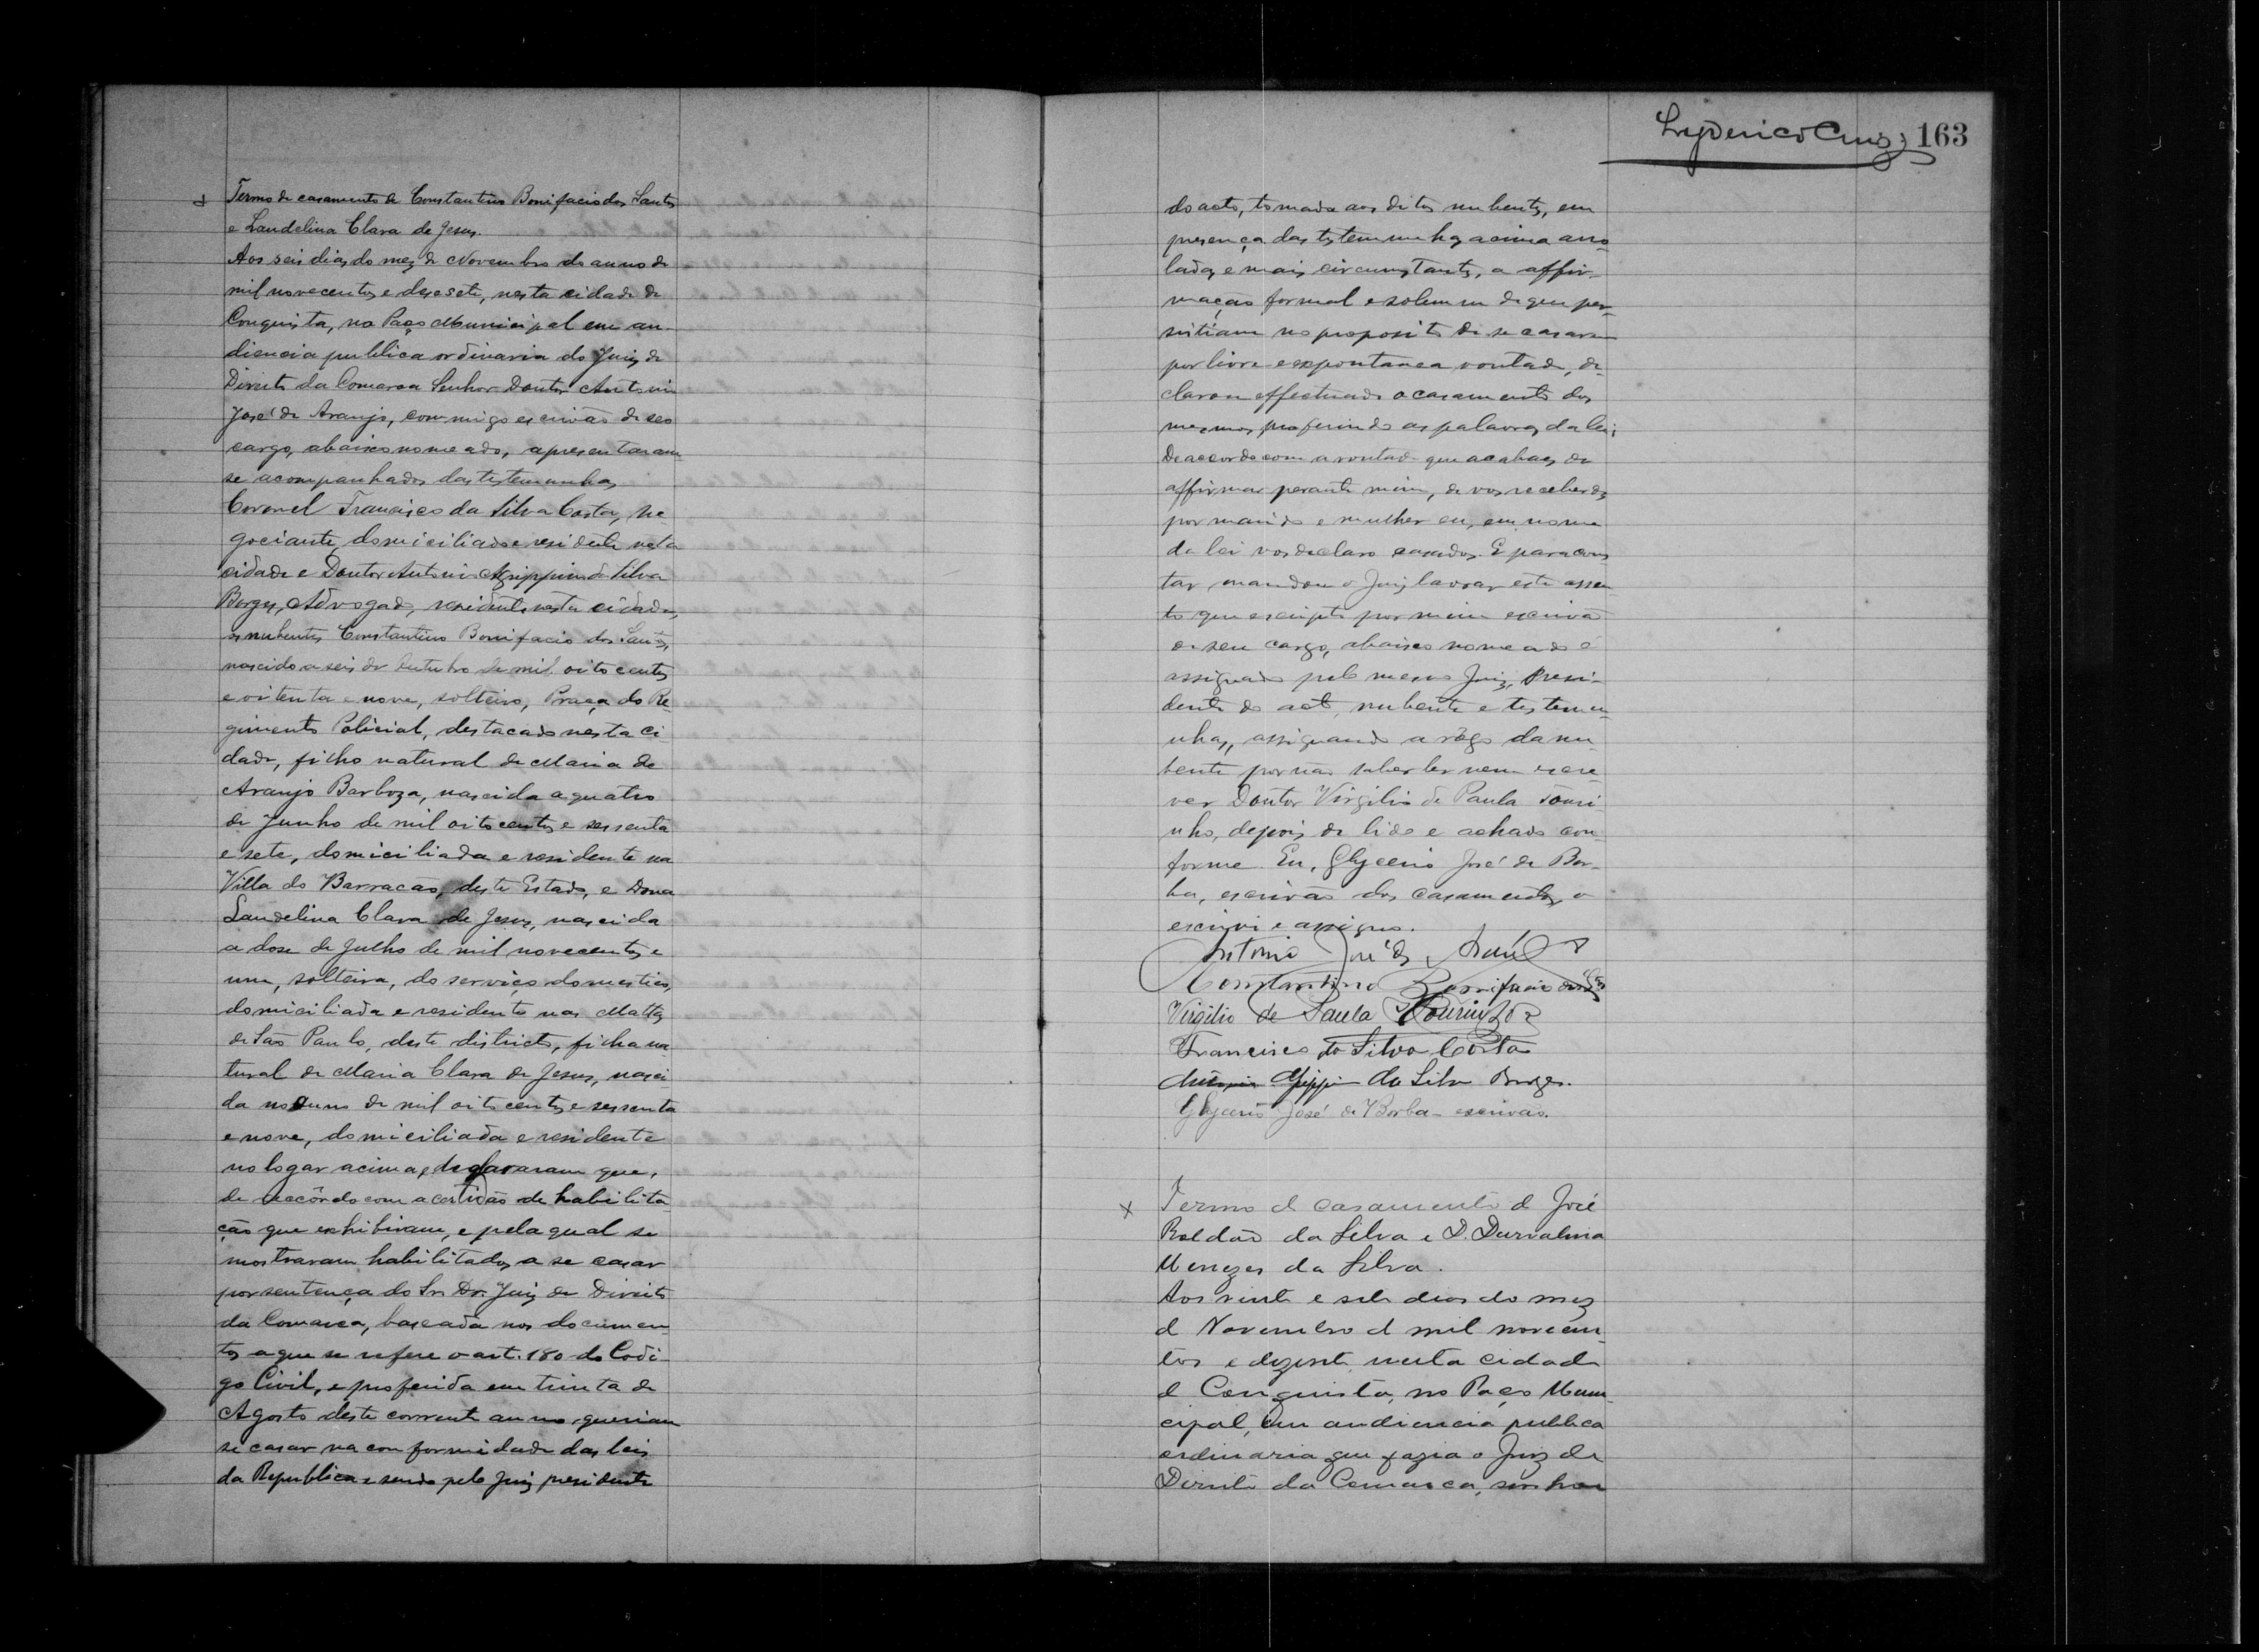 Termo de casamento de Constantino Bonifacio dos Santos
e Laudelina Clara de Jesus.
Aos seis dias do mez de Novembro do anno de
mil novecentos e desesete, nesta cidade de
Conquista, no Paço Municipal em au-
diencia publica ordinaria do Juiz de
Direito da Comarca Senhor Doutor Antonio
José de Araujo, commigo escrivão de seo
cargo, abaixo nomeado, apresentaram
se acompanhados das testemunhas
Coronel Francisco da Silva Costa, ne-
gociante, domiciliado e residente nesta
cidade e Doutor Antonio Agrippino da Silva
Borges, Advogado, residente nesta cidade,
os nubentes Constantino Bonifacio dos Santos,
nascido a seis de Outubro de mil oito centos
e oitenta e nove, solteiro, Praça do Re-
gimento Policial, destacado nesta ci-
dade, filho natural de Maria de
Araujo Barboza, nascida a quatro
de Junho de mil oito centos e sessenta
e sete, domiciliada e residente na
Villa do Barracão, deste Estado, e Dona
Laudelina Clara de Jesus, nascida
a dose de Julho de mil novecentos e
um, solteira, do serviço domestico,
domiciliada e residente nas Mattas
de São Paulo, deste districto, filha na-
tural de Maria Clara de Jesus, nasci-
da no anno de mil oito centos e sessenta
e nove, domiciliada e residente
no logar acima, e declararam que,
de accôrdo com a certidão de habilita
ção que exhibiram, e pela qual se
mostraram habilitados a se casar
por sentença do Sr. Dr. Juiz de Direito
da Comarca, baseada nos documen-
tos a que se refere o art. 180 do Codi-
go Civil, e proferida em trinta de
Agosto deste corrente anno, queriam
se casar na conformidade das leis
da Republica e sendo pelo Juiz presidente
Lyderico Cruz 163
do acto, tomada aos ditos nubentes, em
presença das testemunhas acima arro-
ladas e mais circumstantes, a affir-
mação formal e solemne de que per-
sistiam no proposito de se casarem
por livre e expontanea vontade, de-
clarou effectuado o casamento dos
mesmos, proferindo as palavras da lei;
De accordo com a vontade que acabaes de
affirmar perante mim, de vos receberdes
por marido e mulher eu, em nome
da lei vos declaro casados. E para cons
tar mandou o Juiz lavrar este assen
to que escripto por mim escrivão
de seu cargo, abaixo nomeado é
assignado pelo mesmo Juiz, Presi-
dente do acto, nubente e testemu-
nhas, assignando a rôgo da nu-
bente por não saber ler nem escre-
ver Doutor Virgilio de Paula Touri
nho, depois de lido e achado con-
forme. Eu, Glycerio José de Bor-
ba, escrivão dos casamentos, o
escrivi e assigno.
Antonio José de Araujo
Constantino Bonifacio dos Stos
Virgilio de Paula Tourinho
Francisco da Silva Costa
Antonio Agrippino da Silva Borges.
Glycerio José de Borba - escrivão.
Termo d casamento d José
Roldão da Silva e D. Durvalina
Menezes da Silva.
Aos vinte e sete dias do mez
d Novembro d mil novecen-
tos e dezesete, nesta cidade
d Conquista, no Paço Muni
cipal, em audiencia publica
ordinaria que fazia o Juiz de
Direito da Comarca, senhor